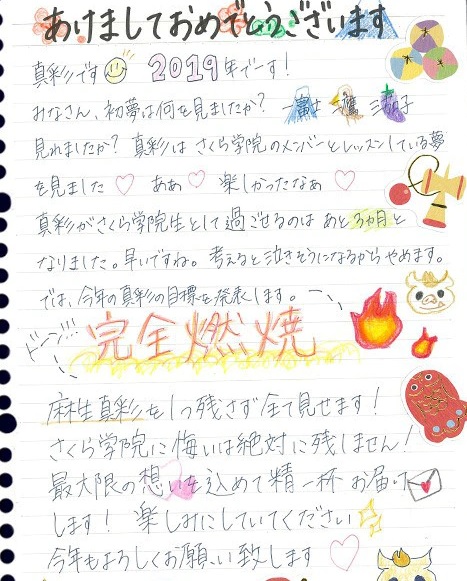 あけましておめでとうございます
真彩です 2019年でーす!
みなさん、初夢は何を見ましたか? 一富士 二鷹 三茄子
見れましたか? 真彩は さくら学院のメンバーとレッスンしている夢
を見ました♡ ああ♡ 楽しかったなぁ♡
真彩がさくら学院生として過ごせるのは あと3ヵ月と
なりました。早いですね。考えると泣きそうになるからやめます。
では、今年の真彩の目標を発表します。
ドーン!!! 完全燃焼
麻生真彩を1つ残さず全て見せます!
さくら学院に悔いは絶対に残しません!
最大限の想いを込めて精一杯お届け
します! 楽しみにしていてください
今年もよろしくお願い致します♡